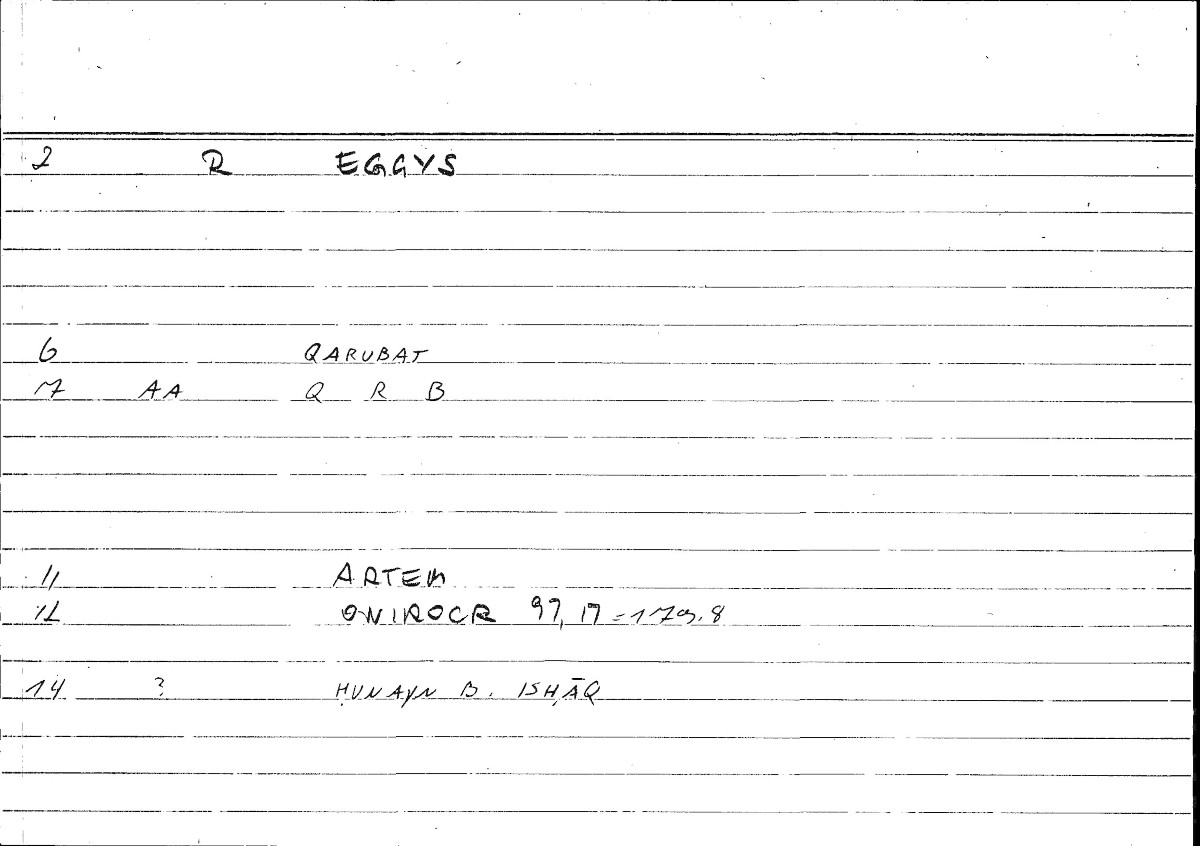 2 R EGGYS
6 QARUBAT
7 AA Q R B
11 ARTEM
12 ONIROCR 97,17=179.8
14 ? ḤUNAYN B. ISḤĀQ